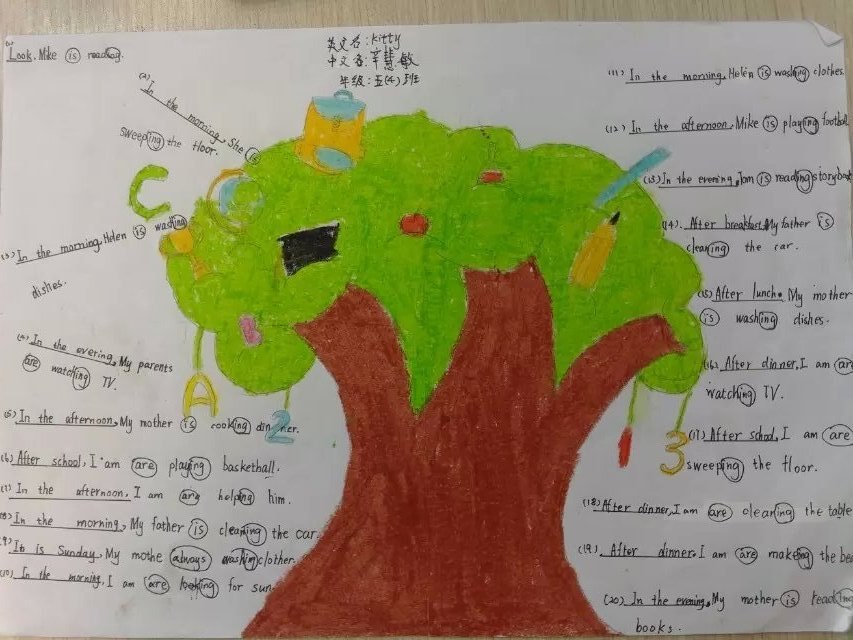 英文名: kitty
中文名: 辛慧敏
年级: 五(4)班
Look. Mike is reading.
(2) In the morning, She is
sweeping the floor.
(3) In the morning, Helen is washing
dishes.
(4) In the evering, My parents
are watching TV.
(5) In the afternoon, My mother is cooking dinner.
(6) After school, I am are playing basketball.
(7) In the afternoon, I am are helping him.
(8) In the morning, My father is cleaning the car.
(9) It is Sunday. My mothe always washing clother.
(10) In the morning, I am are looking for sun
(11) In the morning, Helen is washing clothes.
(12) In the afternoon, Mike is playing football
(13) In the evening, Tom is reading storybook
(14) After breakfast, My father is
cleaning the car.
(15) After lunch. My mother
is washing dishes.
(16) After dinner, I am are
watching TV.
(17) After school, I am are
sweeping the floor.
(18) After dinner, I am are cleaning the table
(19) After dinner, I am are makeing the be
(20) In the evening, My mother is reading
books.
C
A
2
3